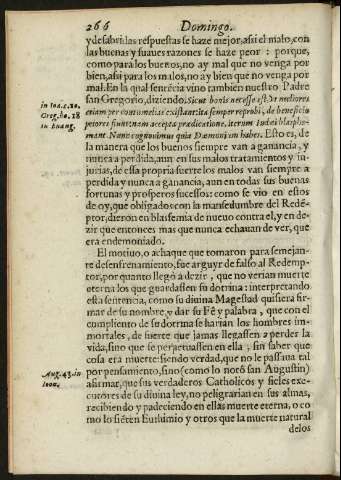 266 Domingo.
y desabridas respuestas se haze mejor, assi el malo, con
las buenas y suaues razones se haze peor : porque,
como para los buenos, no ay mal que no venga por
bien, assi para los malos, no ay bien que no venga por
mal. En la qual sentẽcia vino tambien nuestro Padre
in Ioa. c. 20.
san Gregorio, diziendo, Sicut bonis necesse est, vt meliores
Greg. ho. 18
etiam per contumelias existant: ita semper reprobi, de beneficio
in Euang.
peiores fiunt: nam accepta predicatione, iterum Iudæi blasphe-
mant. Nunc cognouimus quia Dæmonium habes. Esto es, de
la manera que los buenos siempre van a ganancia, y
nunca a perdida, aun en sus malos tratamientos y in-
jurias, de essa propria suerte los malos van siempre a
perdida y nunca a ganancia, aun en todas sus buenas
fortunas y prosperos sucessos: como se vio en estos
de oy, que obligados con la mansedumbre del Redẽ-
ptor, dieron en blasfemia de nueuo contra el, y en de-
zir que entonces mas que nunca echauan de ver, que
era endemoniado.
El motiuo, o achaque que tomaron para semejan-
te desenfrenamiento, fue arguyr de falso al Redemp-
tor, por quanto llegó a dezir , que no verian muerte
eterna los que guardassen su dotrina : interpretando
esta sentencia, como su diuina Magestad quisiera fir-
mar de su nombre, y dar su Fè y palabra , que con el
cumpliento de su dotrina se harian los hombres im-
mortales, de suerte que jamas llegassen a perder la
vida, sino que se perpetuassen en ella , sin saber que
cosa era muerte: siendo verdad, que no le passaua tal
Aug. 43. in
por pensamiento, sino (como lo notó san Augustin)
Ioan.
afirmar, que sus verdaderos Catholicos y fieles exe-
cutores de su diuina ley, no peligrarian en sus almas,
recibiendo y padeciendo en ellas muerte eterna, o co
mo lo siẽten Euthimio y otros que la muerte natural
delos